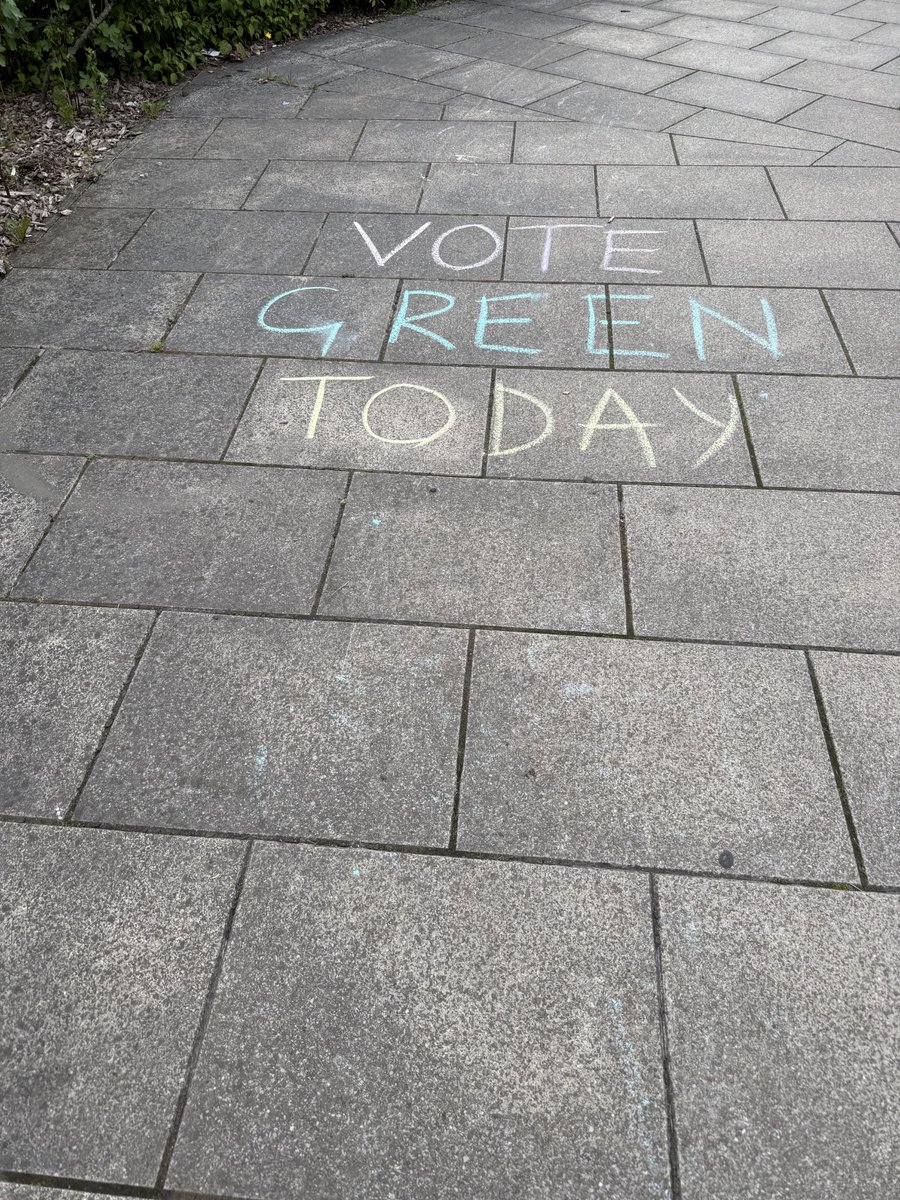 VOTE
GREEN
TODAY